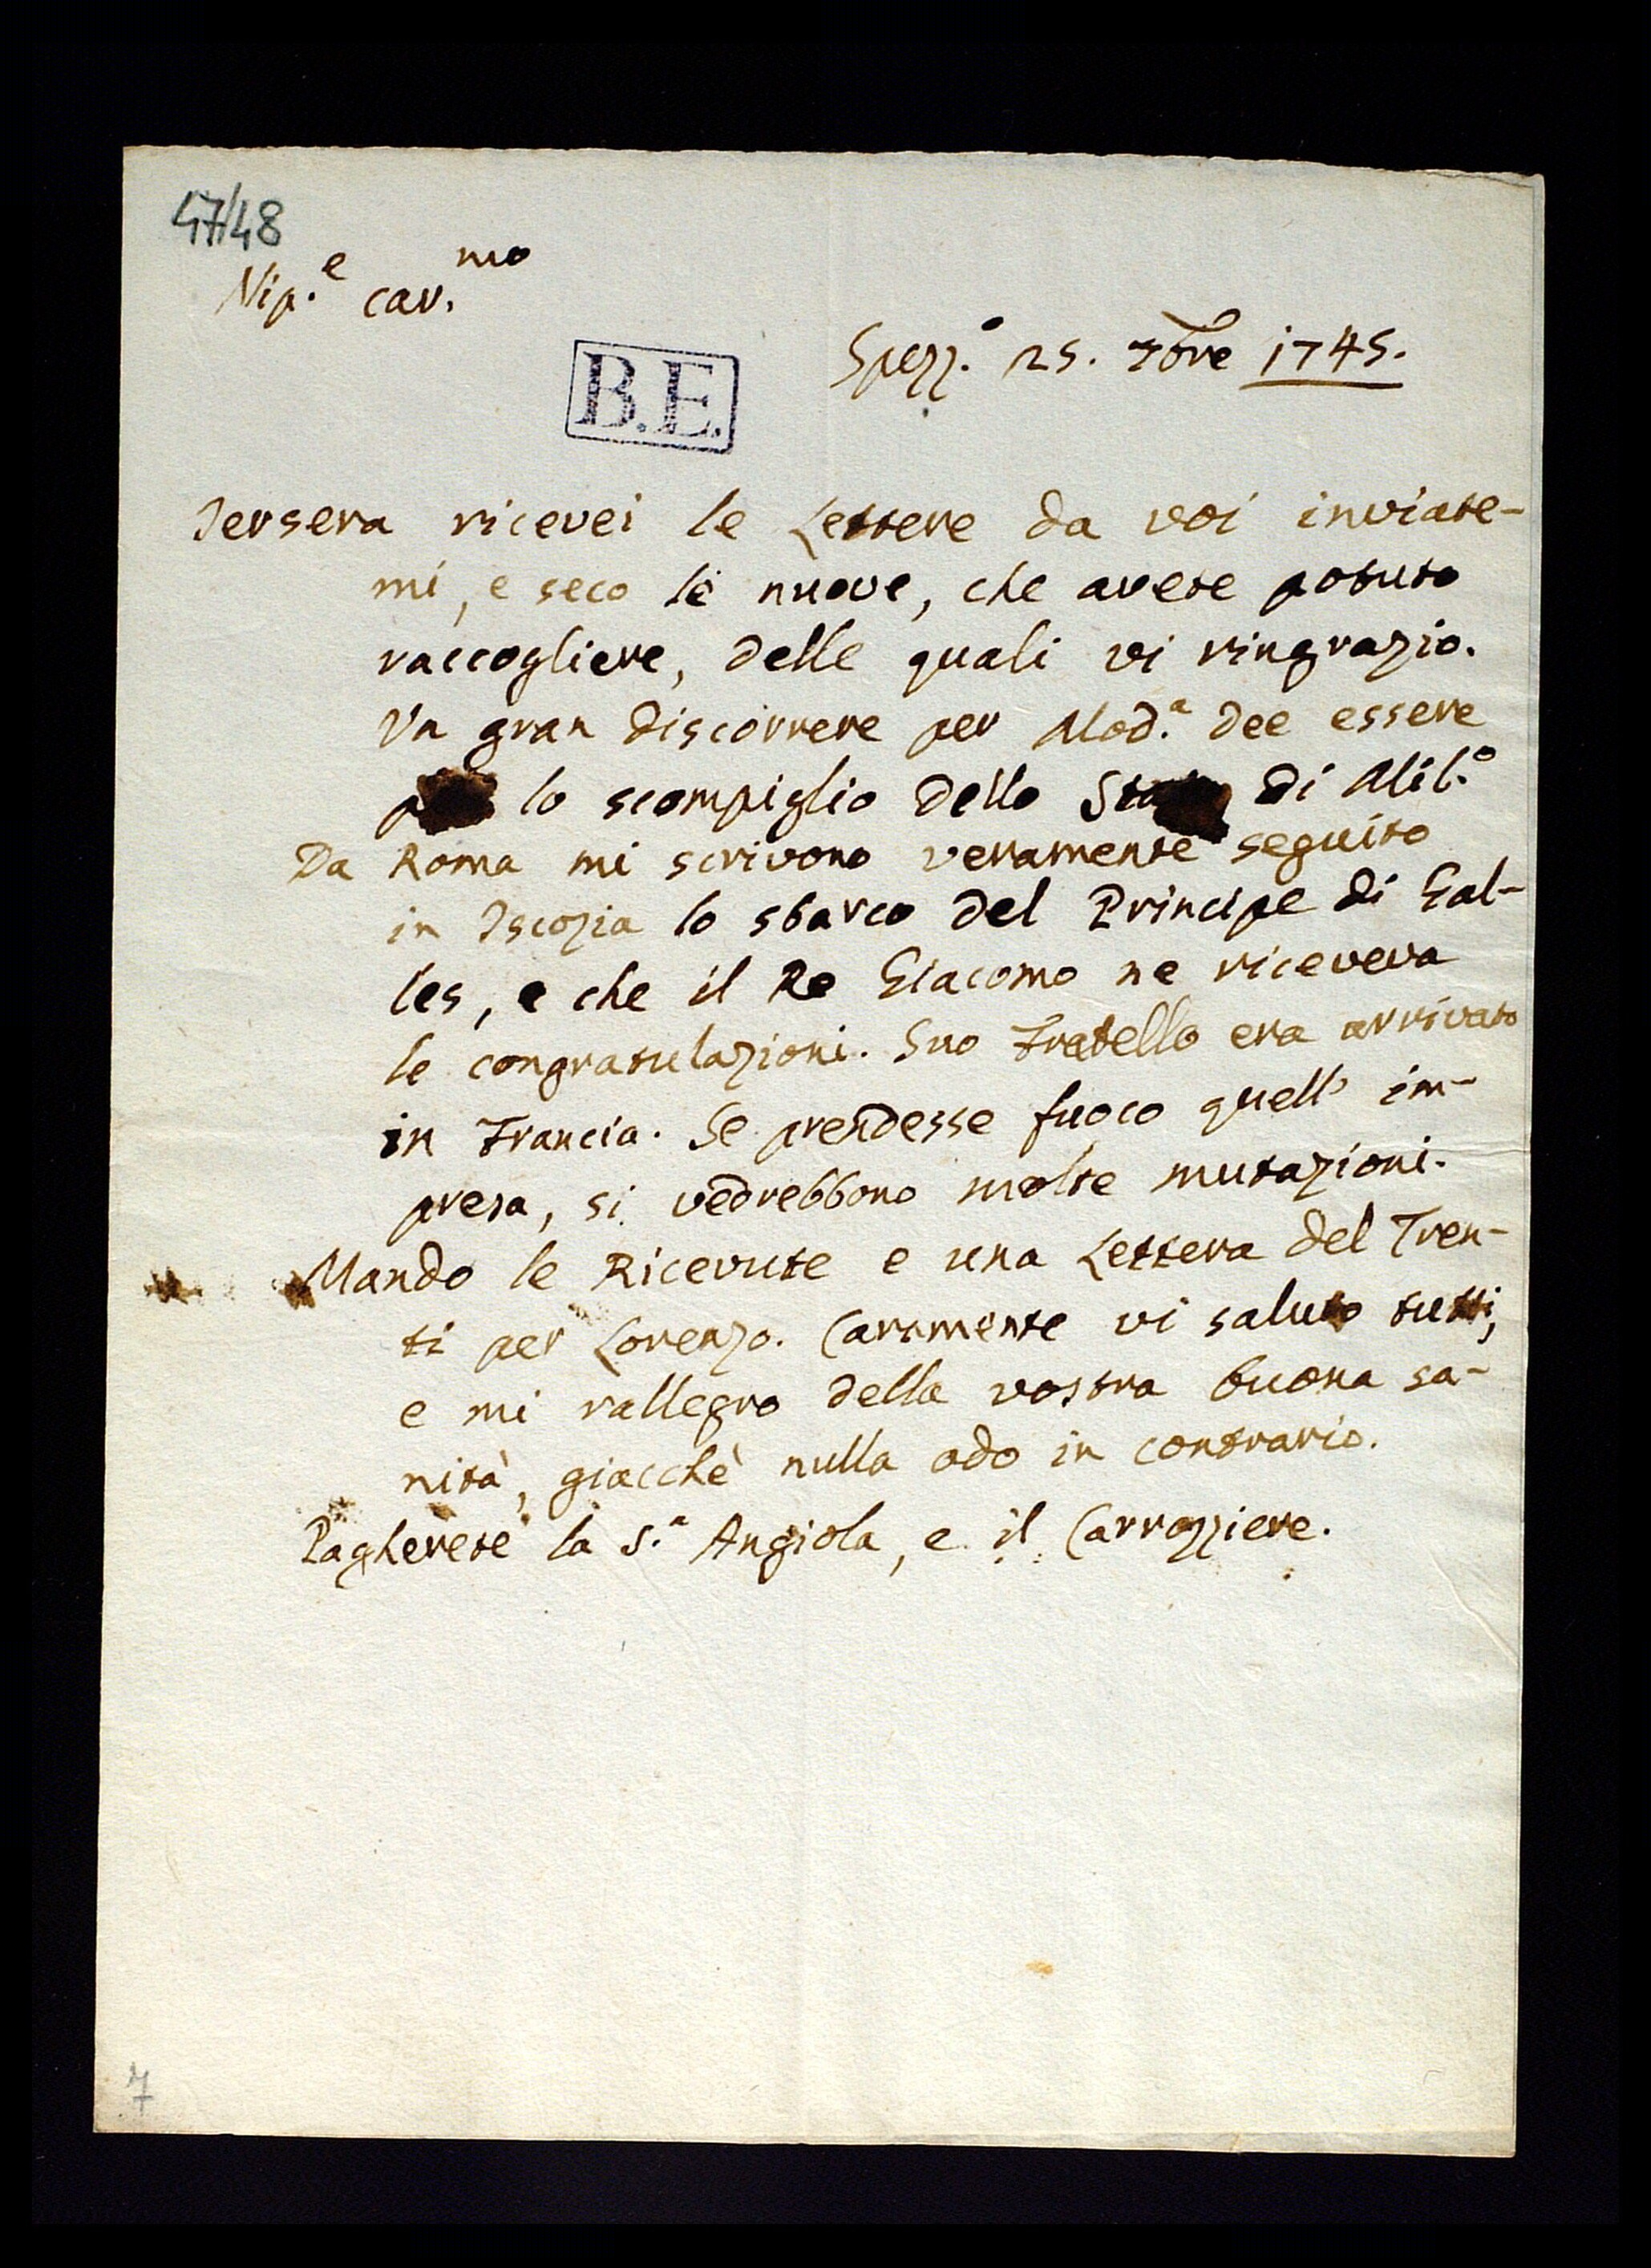 47/48
Nip.e car.mo
B.E.
Spezz.o 25. 7bre 1745.
Jersera ricevei le Lettere da voi inviate-
mi, e seco le nuove, che avete potuto
raccogliere, delle quali vi ringrazio.
Un gran discorrere per Mod.a dee essere
lo scompiglio dello di Mil.o
Da Roma mi scrivono veramente seguito
in Iscozia lo sbarco del Principe di Gal-
les, e che il Re Giacomo ne riceveva
le congratulazioni. Suo Fratello era arrivato
in Francia. Se prendesse fuoco quell' im-
presa, si vedrebbono molte mutazioni.
Mando le Ricevute e una Lettera del Tren-
ti per Lorenzo. Caramente vi saluto tutti,
e mi rallegro della vostra buona sa-
nità, giacchè nulla odo in contrario.
Pagherete la S.a Angiola, e il Carrozziere.
7